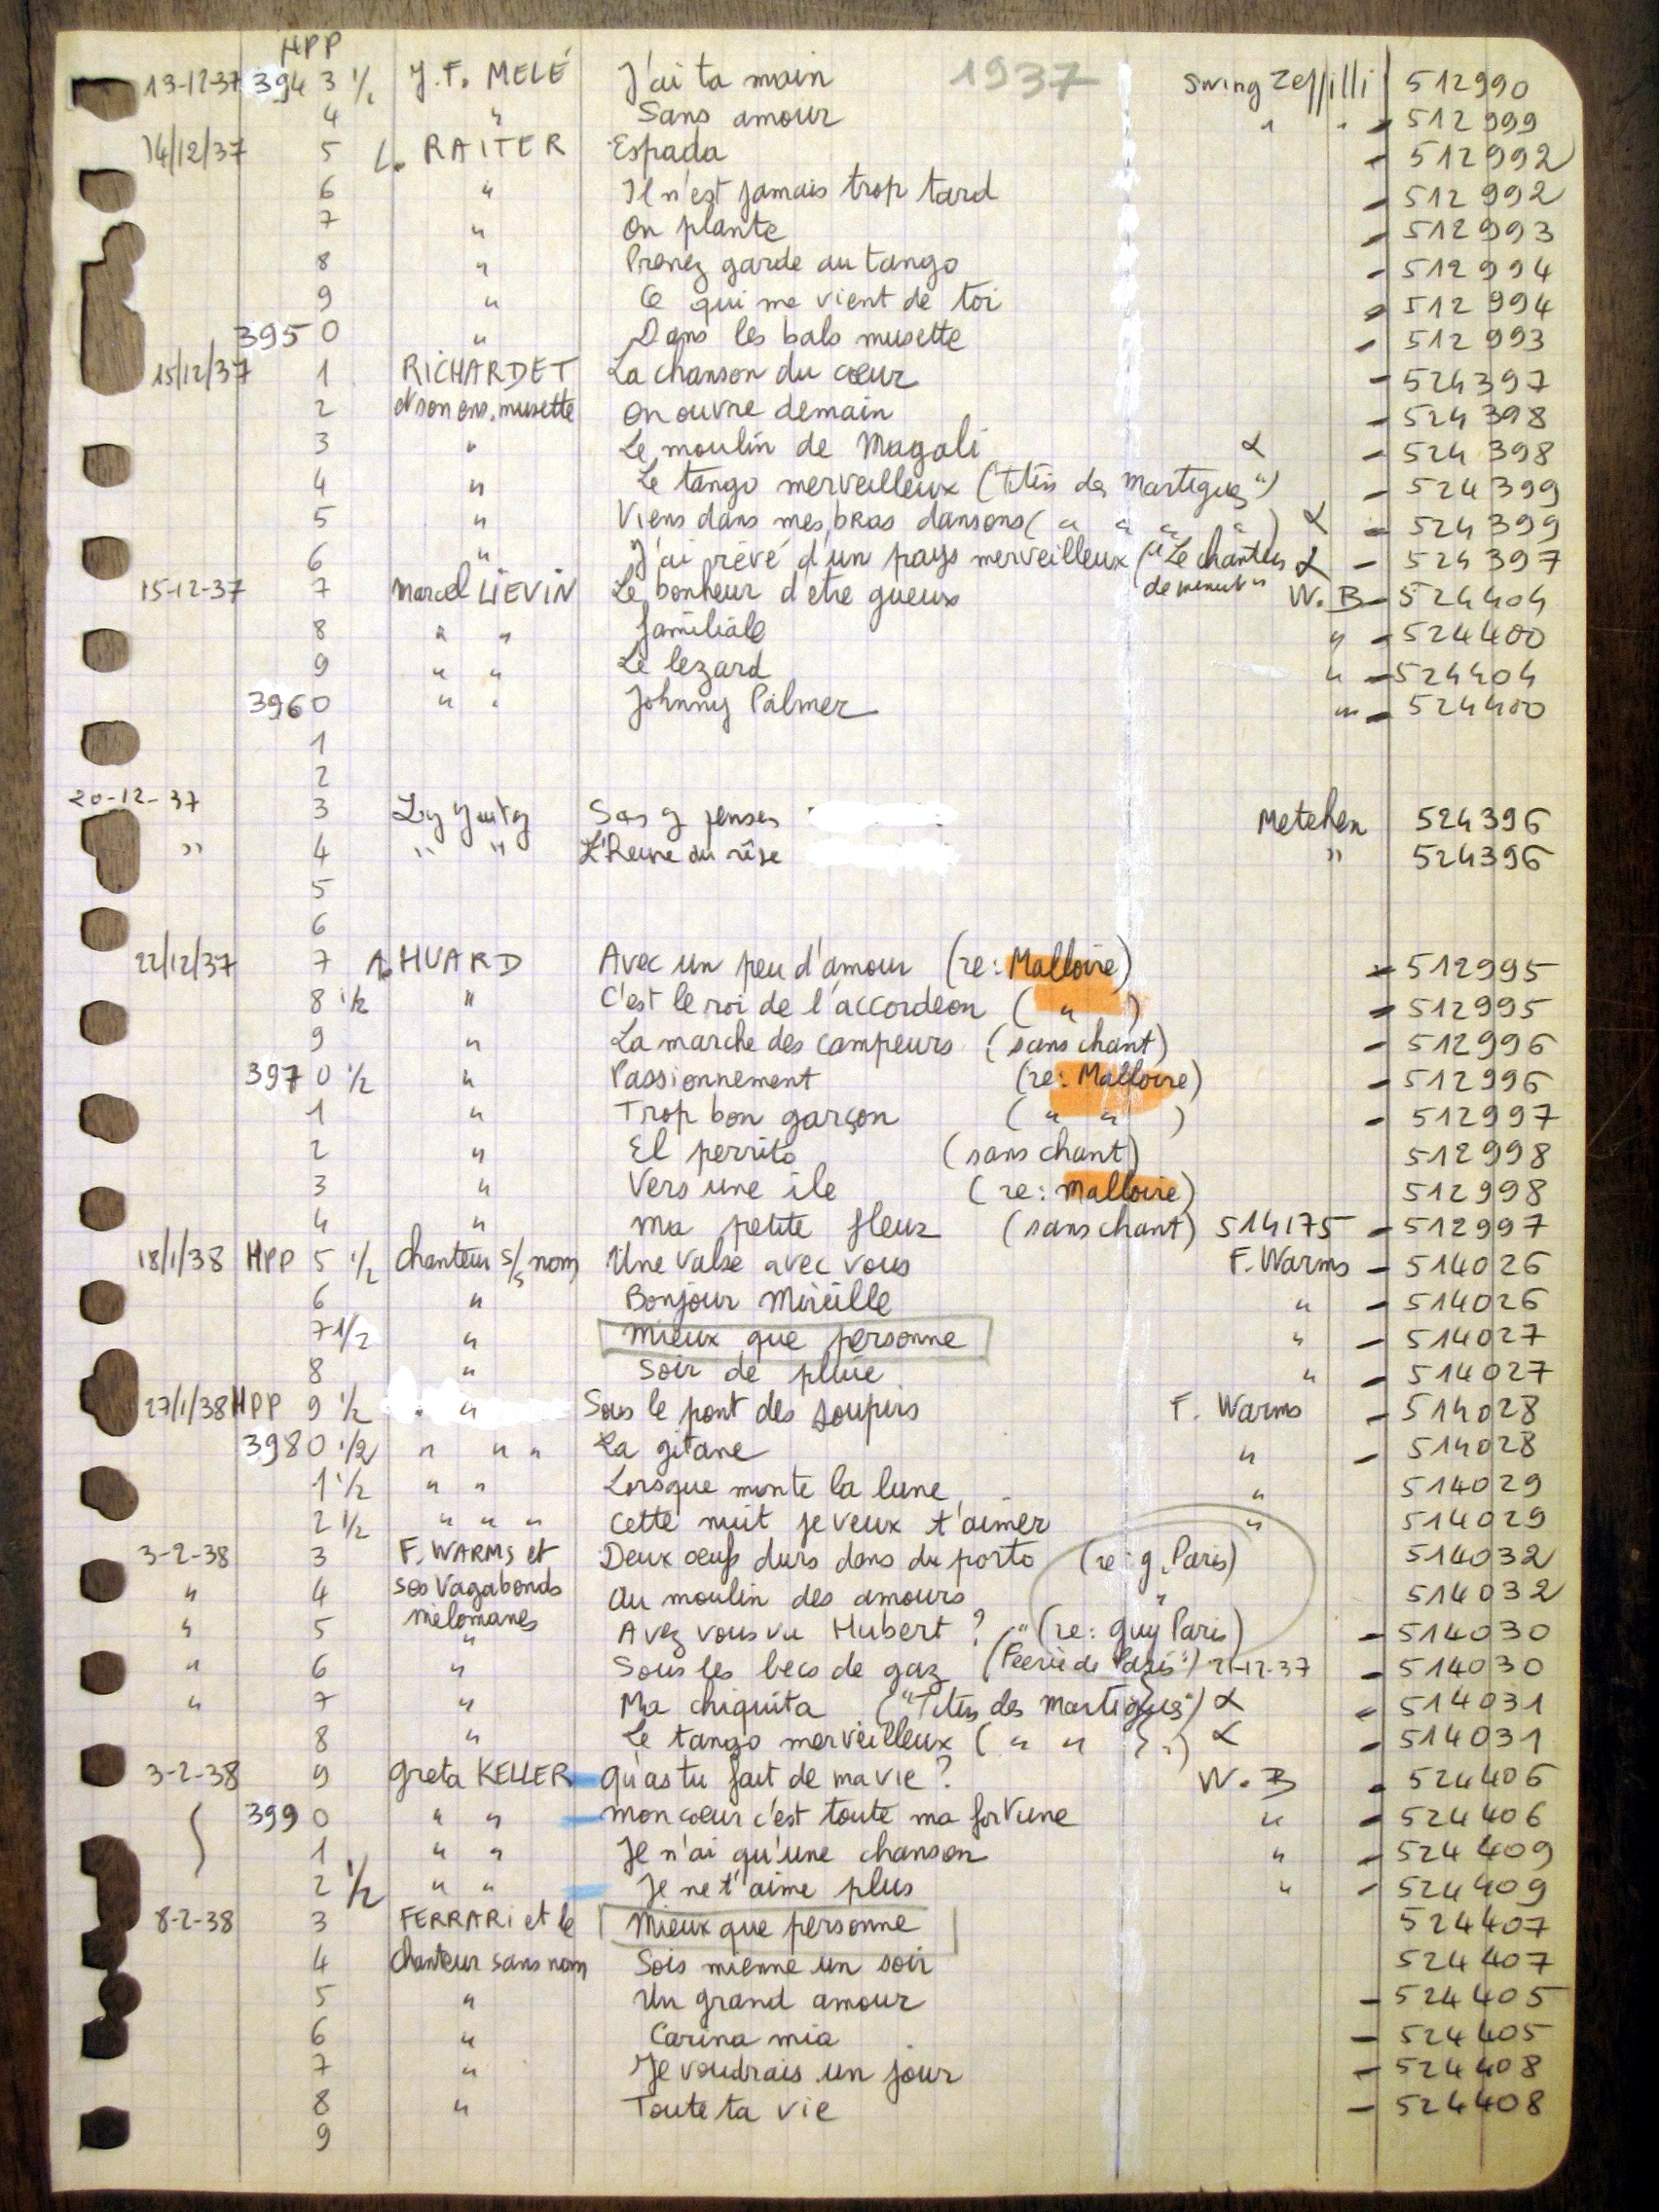 HPP
13-12-37 394 3 1/2 J.F. MELÉ J'ai ta main 1937 Swing Zeffilli 512990
4 " Sans amour " " - 512999
14/12/37 5 L. RAITER Espada - 512992
6 " Il n'est jamais trop tard - 512992
7 " On plante - 512993
8 " Prenez garde au tango - 512994
9 " Ce qui me vient de toi - 512994
395 0 " Dans les bals musette - 512993
15/12/37 1 RICHARDET La chanson du cœur - 524397
2 et son ens. musette On ouvre demain - 524398
3 " Le moulin de Magali α - 524398
4 " Le tango merveilleux ("Titin des Martigues") - 524399
5 " Viens dans mes bras dansons (" " " ") α - 524399
6 " J'ai rêvé d'un pays merveilleux ("Le chanteur α - 524397
de minuit"
15-12-37 7 Marcel LIEVIN Le bonheur d'etre gueux W.B - 524404
8 " " familiale " - 524400
9 " " Le lezard " - 524404
396 0 " " Johnny Palmer " - 524400
1
2
20-12-37 3 Sans y penser Metehen 524396
" 4 " " L'Reine du rêve " 524396
5
6
22/12/37 7 A. HUARD Avec un peu d'amour (re: Malloire) - 512995
8 1/2 " C'est le roi de l'accordeon ( " ) - 512995
9 " La marche des campeurs (sans chant) - 512996
397 0 1/2 " Passionnement (re: Malloire) - 512996
1 " Trop bon garçon ( " " ) - 512997
2 " El perrito (sans chant) 512998
3 " Vers une ile (re: Malloire) 512998
4 " Ma petite fleur (sans chant) 514175 - 512997
18/1/38 HPP 5 1/2 Chanteur s/s nom Une valse avec vous F. Warms - 514026
6 " Bonjour Mireille " - 514026
7 1/2 " Mieux que personne " - 514027
8 " Soir de pluie " - 514027
27/1/38 HPP 9 1/2 " " Sous le pont des soupirs F. Warms - 514028
398 0 1/2 " " " La gitane " - 514028
1 1/2 " " Lorsque monte la lune " 514029
2 1/2 " " " Cette nuit je veux t'aimer " 514029
3-2-38 3 F. WARMS et Deux oeufs durs dans du porto (re: g. Paris) 514032
" 4 ses Vagabonds Au moulin des amours " 514032
mélomanes
" 5 " Avez vous vu Hubert ? " (re: guy Paris) - 514030
" 6 " Sous les becs de gaz (Féerie de Paris") 21-12-37 - 514030
" 7 " Ma chiquita ("Titin des Martigues") α - 514031
8 " Le tango merveilleux ( " " " ) α - 514031
3-2-38 9 Greta KELLER Qu'as tu fait de ma vie ? W.B - 524406
399 0 " " mon coeur c'est toute ma fortune " - 524406
1 " " Je n'ai qu'une chanson " - 524409
2 1/2 " " Je ne t'aime plus " - 524409
8-2-38 3 FERRARI et le Mieux que personne 524407
4 Chanteur sans nom Sois mienne un soir 524407
5 " Un grand amour - 524405
6 " Carina mia - 524405
7 " Je voudrais un jour - 524408
8 " Toute ta vie - 524408
9